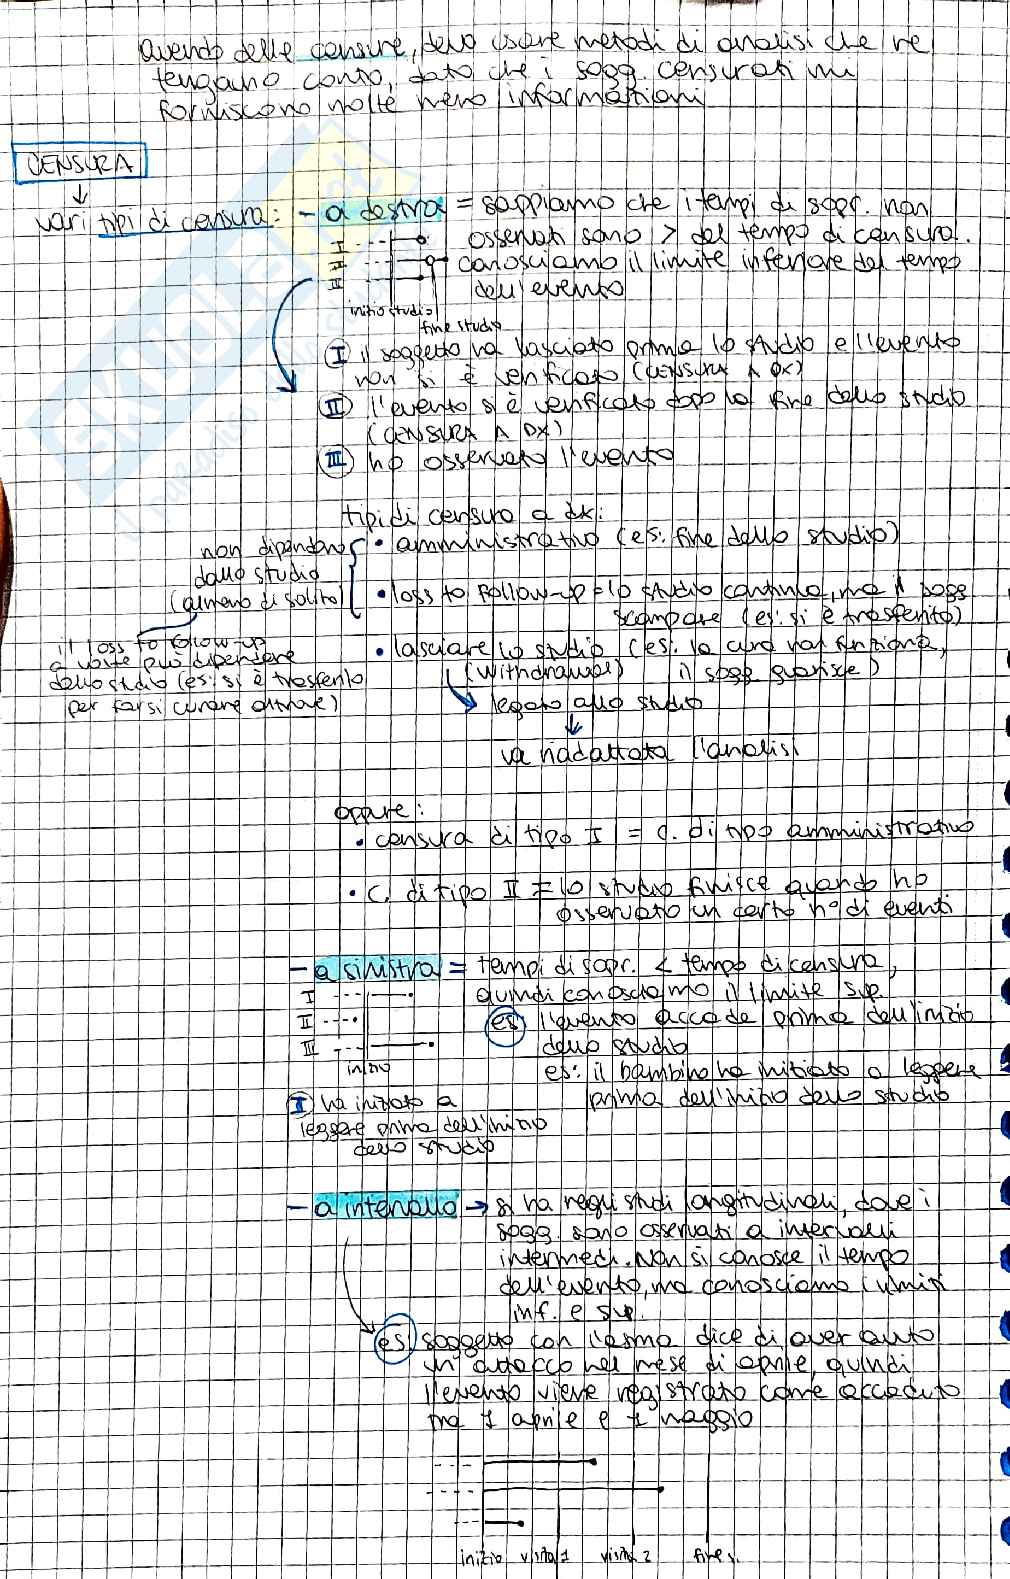 avendo delle censure, devo usare metodi di analisi che ne
tengano conto, dato che i sogg. censurati mi
forniscono molte meno informazioni
CENSURA
vari tipi di censura: - a destra = sappiamo che i tempi di sopr. non
osservati sono > del tempo di censura.
conosciamo il limite inferiore del tempo
dell'evento
I
II
III
inizio studio
fine studio
I il soggetto ha lasciato prima lo studio e l'evento
non si è verificato (CENSURA A DX)
II l'evento si è verificato dopo la fine dello studio
(CENSURA A DX)
III ho osservato l'evento
tipi di censura a dx:
• amministrativo (es: fine dello studio)
• loss to follow-up = lo studio continua, ma il sogg
scompare (es: si è trasferito)
• lasciare lo studio (es: la cura non funziona,
(withdrawal) il sogg guarisce)
legato allo studio
va riadattata l'analisi
non dipendono
dallo studio
(almeno di solito)
il loss to follow-up
a volte può dipendere
dallo studio (es: si è trasferito
per farsi curare altrove)
oppure:
• censura di tipo I = c. di tipo amministrativo
• c. di tipo II = lo studio finisce quando ho
osservato un certo n° di eventi
- a sinistra = tempi di sopr. < tempo di censura,
quindi conosciamo il limite sup.
es l'evento accade prima dell'inizio
dello studio
es: il bambino ha iniziato a leggere
prima dell'inizio dello studio
I
II
III
inizio
I ha iniziato a
leggere prima dell'inizio
dello studio
- a intervallo → si ha negli studi longitudinali, dove i
sogg. sono osservati a intervalli
intermedi. Non si conosce il tempo
dell'evento, ma conosciamo i limiti
inf. e sup.
es soggetto con l'asma dice di aver avuto
un attacco nel mese di aprile, quindi
l'evento viene registrato come accaduto
tra 1 aprile e 1 maggio
inizio visita 1 visita 2 fine s.